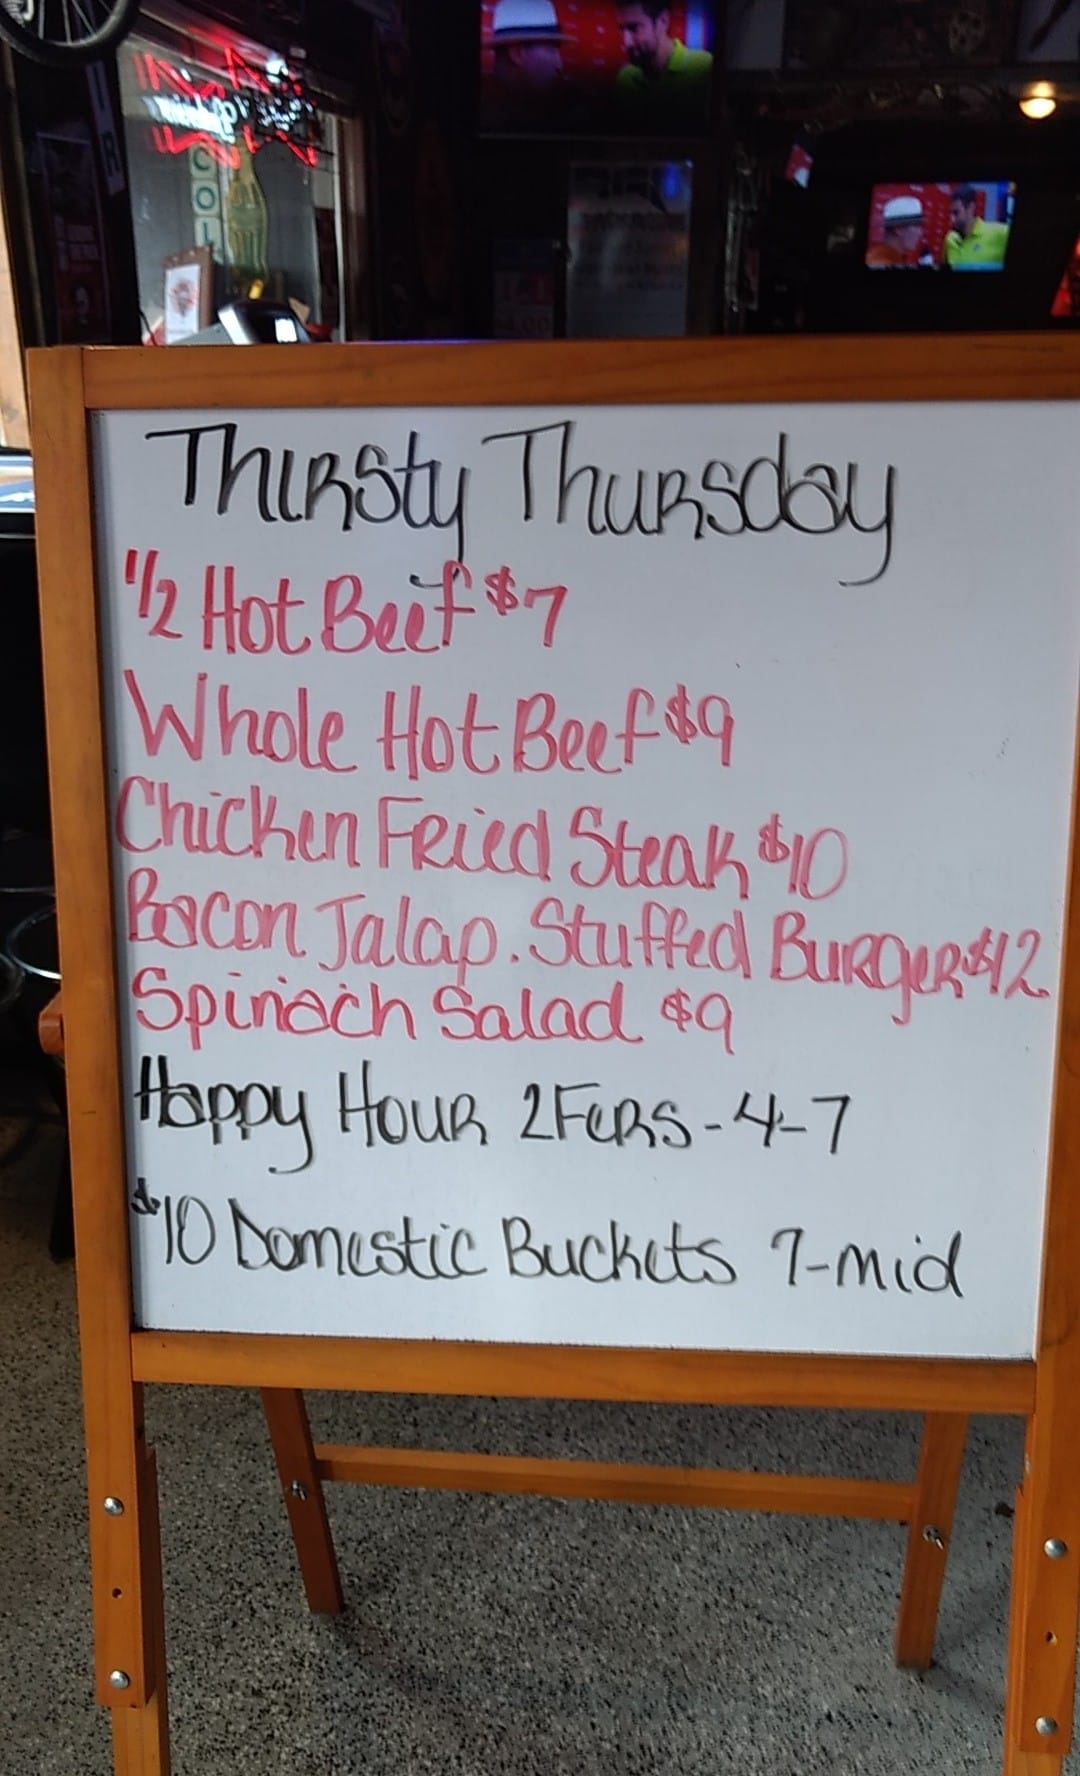 COL
Thirsty Thursday
1/2 Hot Beef $7
Whole Hot Beef $9
Chicken Fried Steak $10
Bacon Jalap. Stuffed Burger $12
Spinach Salad $9
Happy Hour 2Fers - 4-7
$10 Domestic Buckets 7-mid